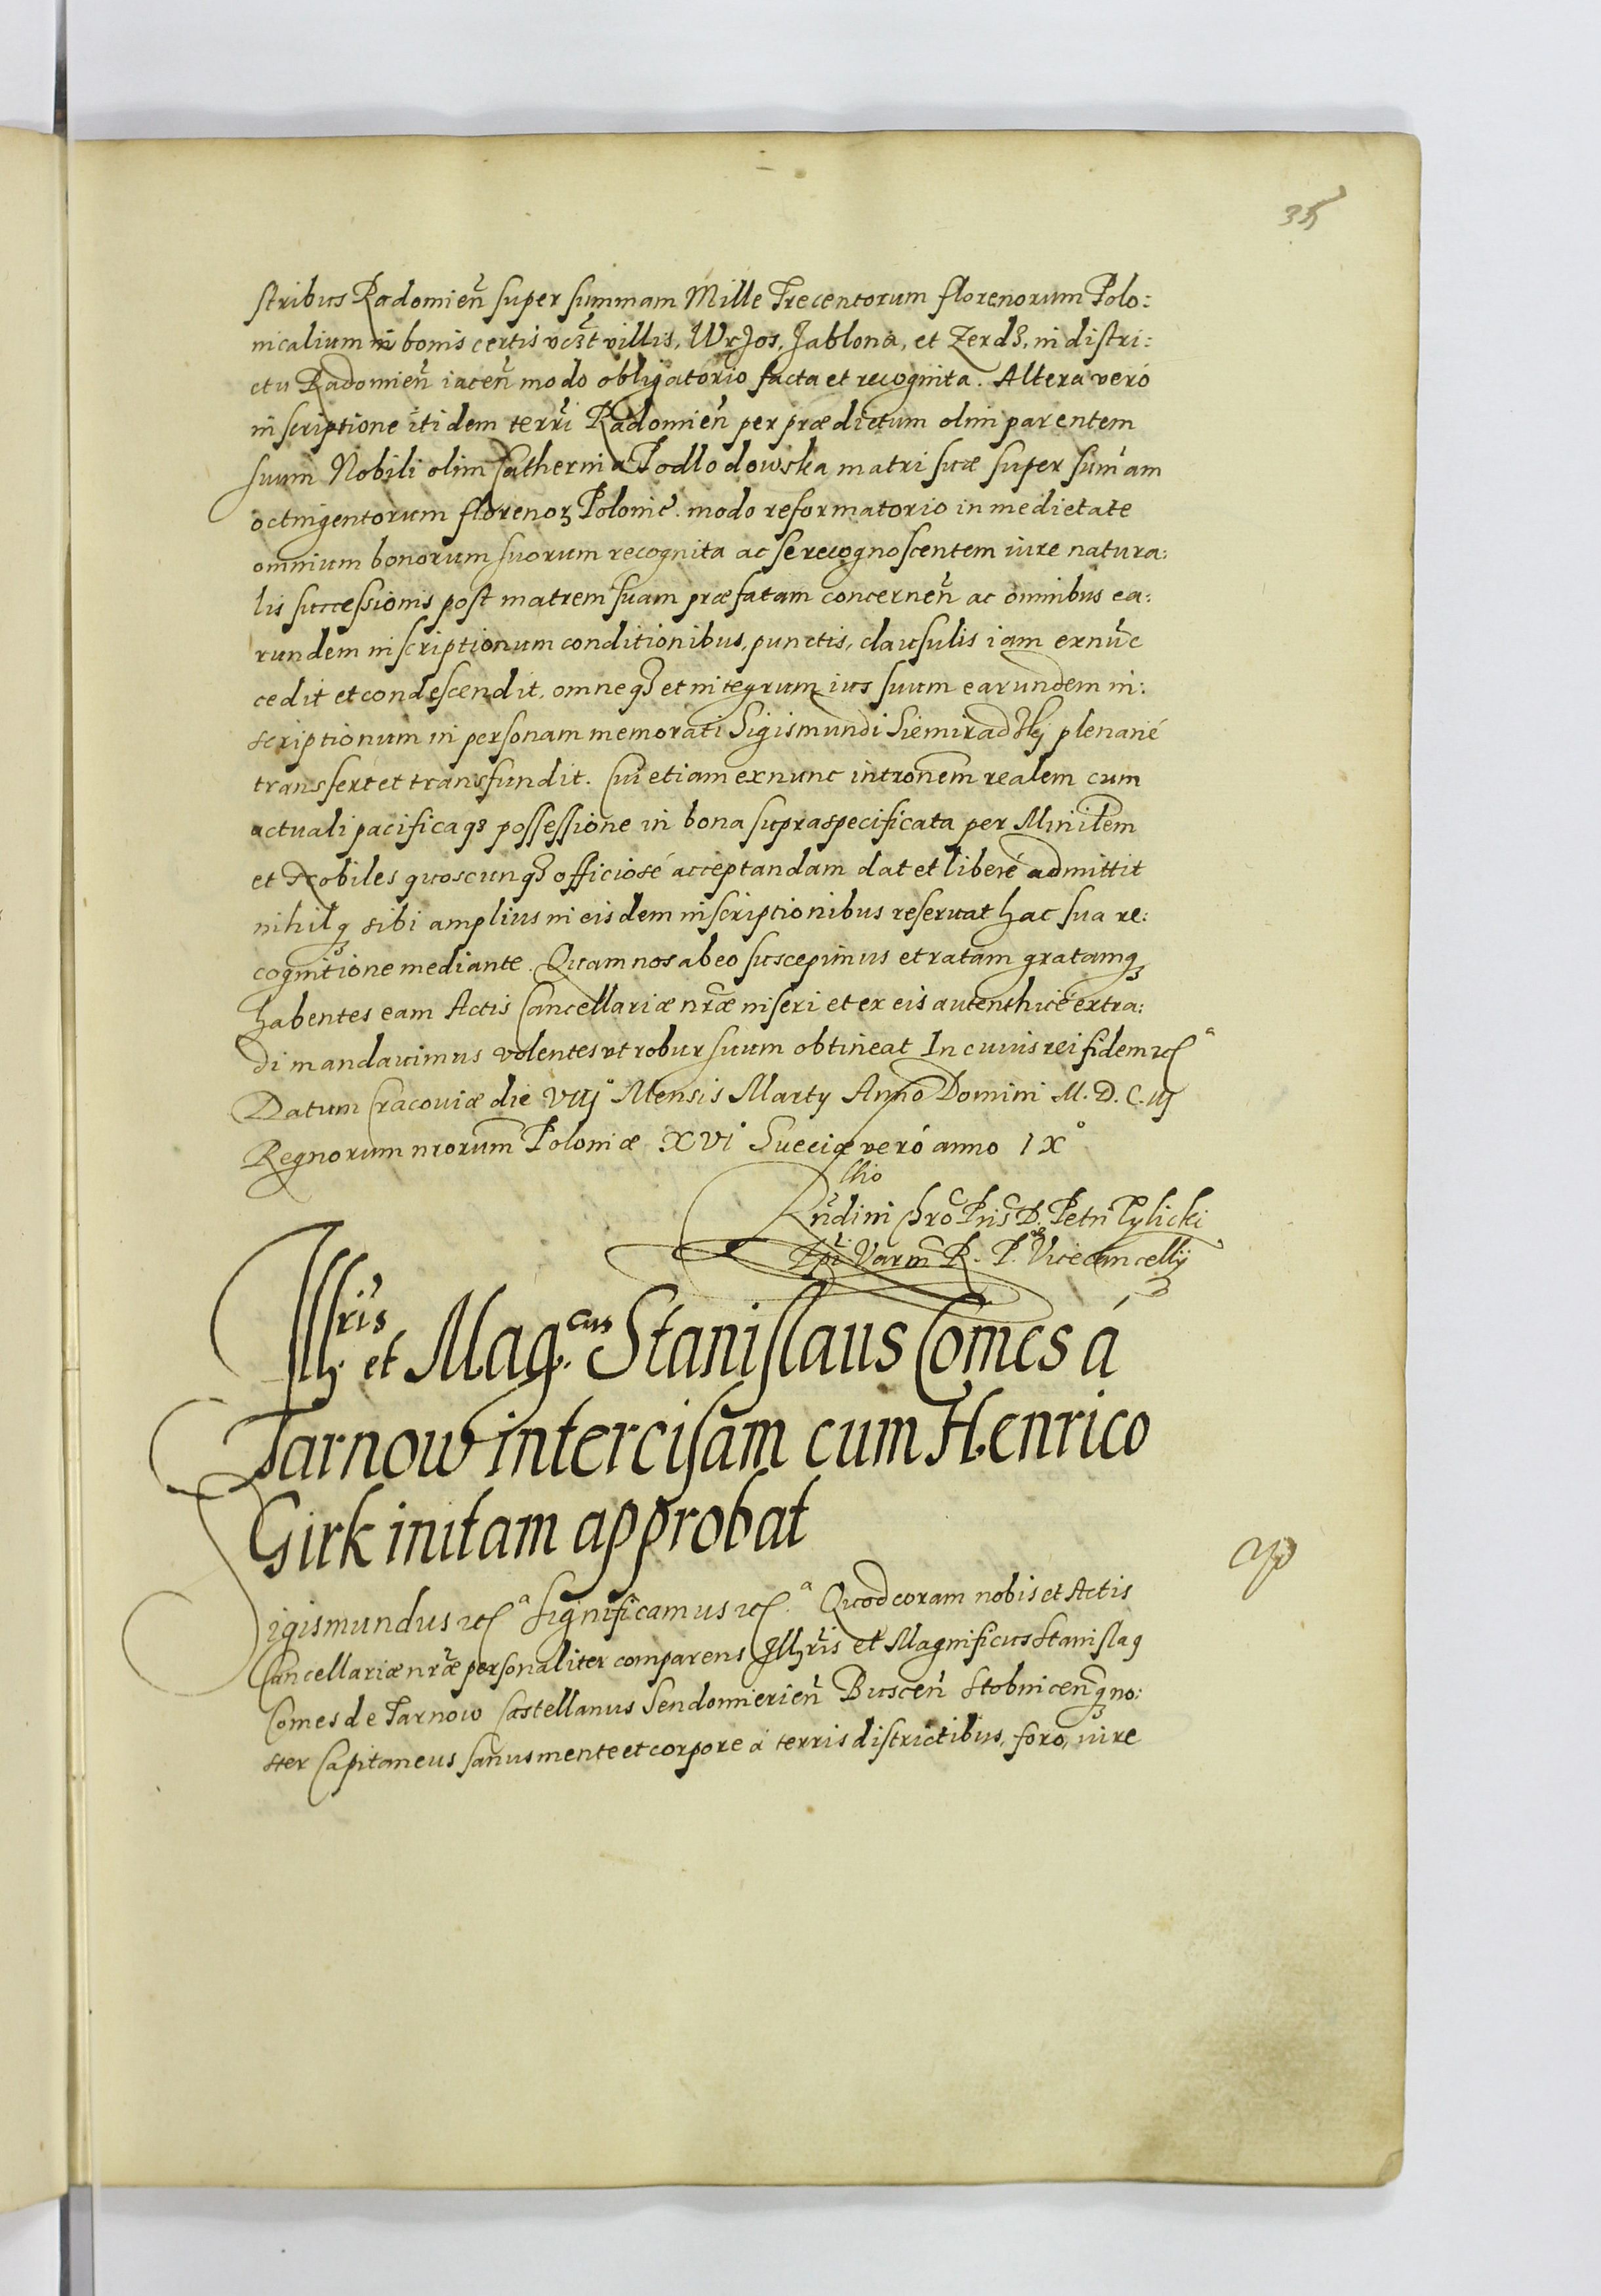 35
stribus Radomien̄ super summam Mille Trecentorum florenorum Polo:
nicalium in bonis certis vczt villis, Wrzos, Jablona, et Zerdz, in distri:
ctu Radomien̄ iacen̄ modo obligatorio facta et recognita. Altera veró
inscriptione itidem terr̄i Radomien̄ per prædictum olim parentem
suum Nobili olim Catherina Podlodowska matri suæ super sum̄am
octingentorum florenoꝝ Polonic̄. modo reformatorio in medietate
omnium bonorum suorum recognita ac se recognoscentem iure natura:
lis successionis post matrem suam præfatam concernen̄ ac omnibus ea:
rundem inscriptionum conditionibus, punctis, clausulis iam exnūc
cedit et condescendit, omneqꝫ et integrum ius suum earundem in:
scriptionum in personam memorati Sigismundi Siemiradzkj plenarié
transfert et transfundit. Cui etiam exnunc intronem̄ realem cum
actuali pacificaqꝫ possessione in bona supraspecificata per Minilem̄
et Nobiles quoscunqꝫ officiosé acceptandam dat et liberé admittit
nihilqꝫ sibi amplius in eisdem inscriptionibus reseruat hac sua re:
cognitione mediante. Quam nos ab eo suscepimus et ratam gratamqꝫ
habentes eam Actis Cancellariæ nr̄æ inseri et ex eis autenthicé extra:
di mandauimus volentes vt robur suum obtineat In cuius rei fidem etcᵃ
Datum Cracouiæ die VIIJ° Mensis Martij Anno Domini M. D. C. IIJ
Regnorum nrorum̄ Poloniæ XVI Sueciæ veró anno IX°
llio
Rn̄dini Chro Pris D. Petri Tylicki
Ep̄i Varm̄ R. P. Vicecancellij
Illris et Mag.cus Stanislaus Comes á
Tarnow intercisam cum Henrico
Girk initam approbat
Sigismundus etcᵃ Significamus etcᵃ. Quod coram nobis et Actis
Cancellariæ nr̄æ personaliter comparens Illr̄is et Magnificus Stanislaꝯ
Comes de Tarnow Castellanus Sendomierien̄ Buscen̄ Stobnicen̄qꝫ no:
ster Capitaneus sanus mente et corpore á terris districtibus, foro, iure